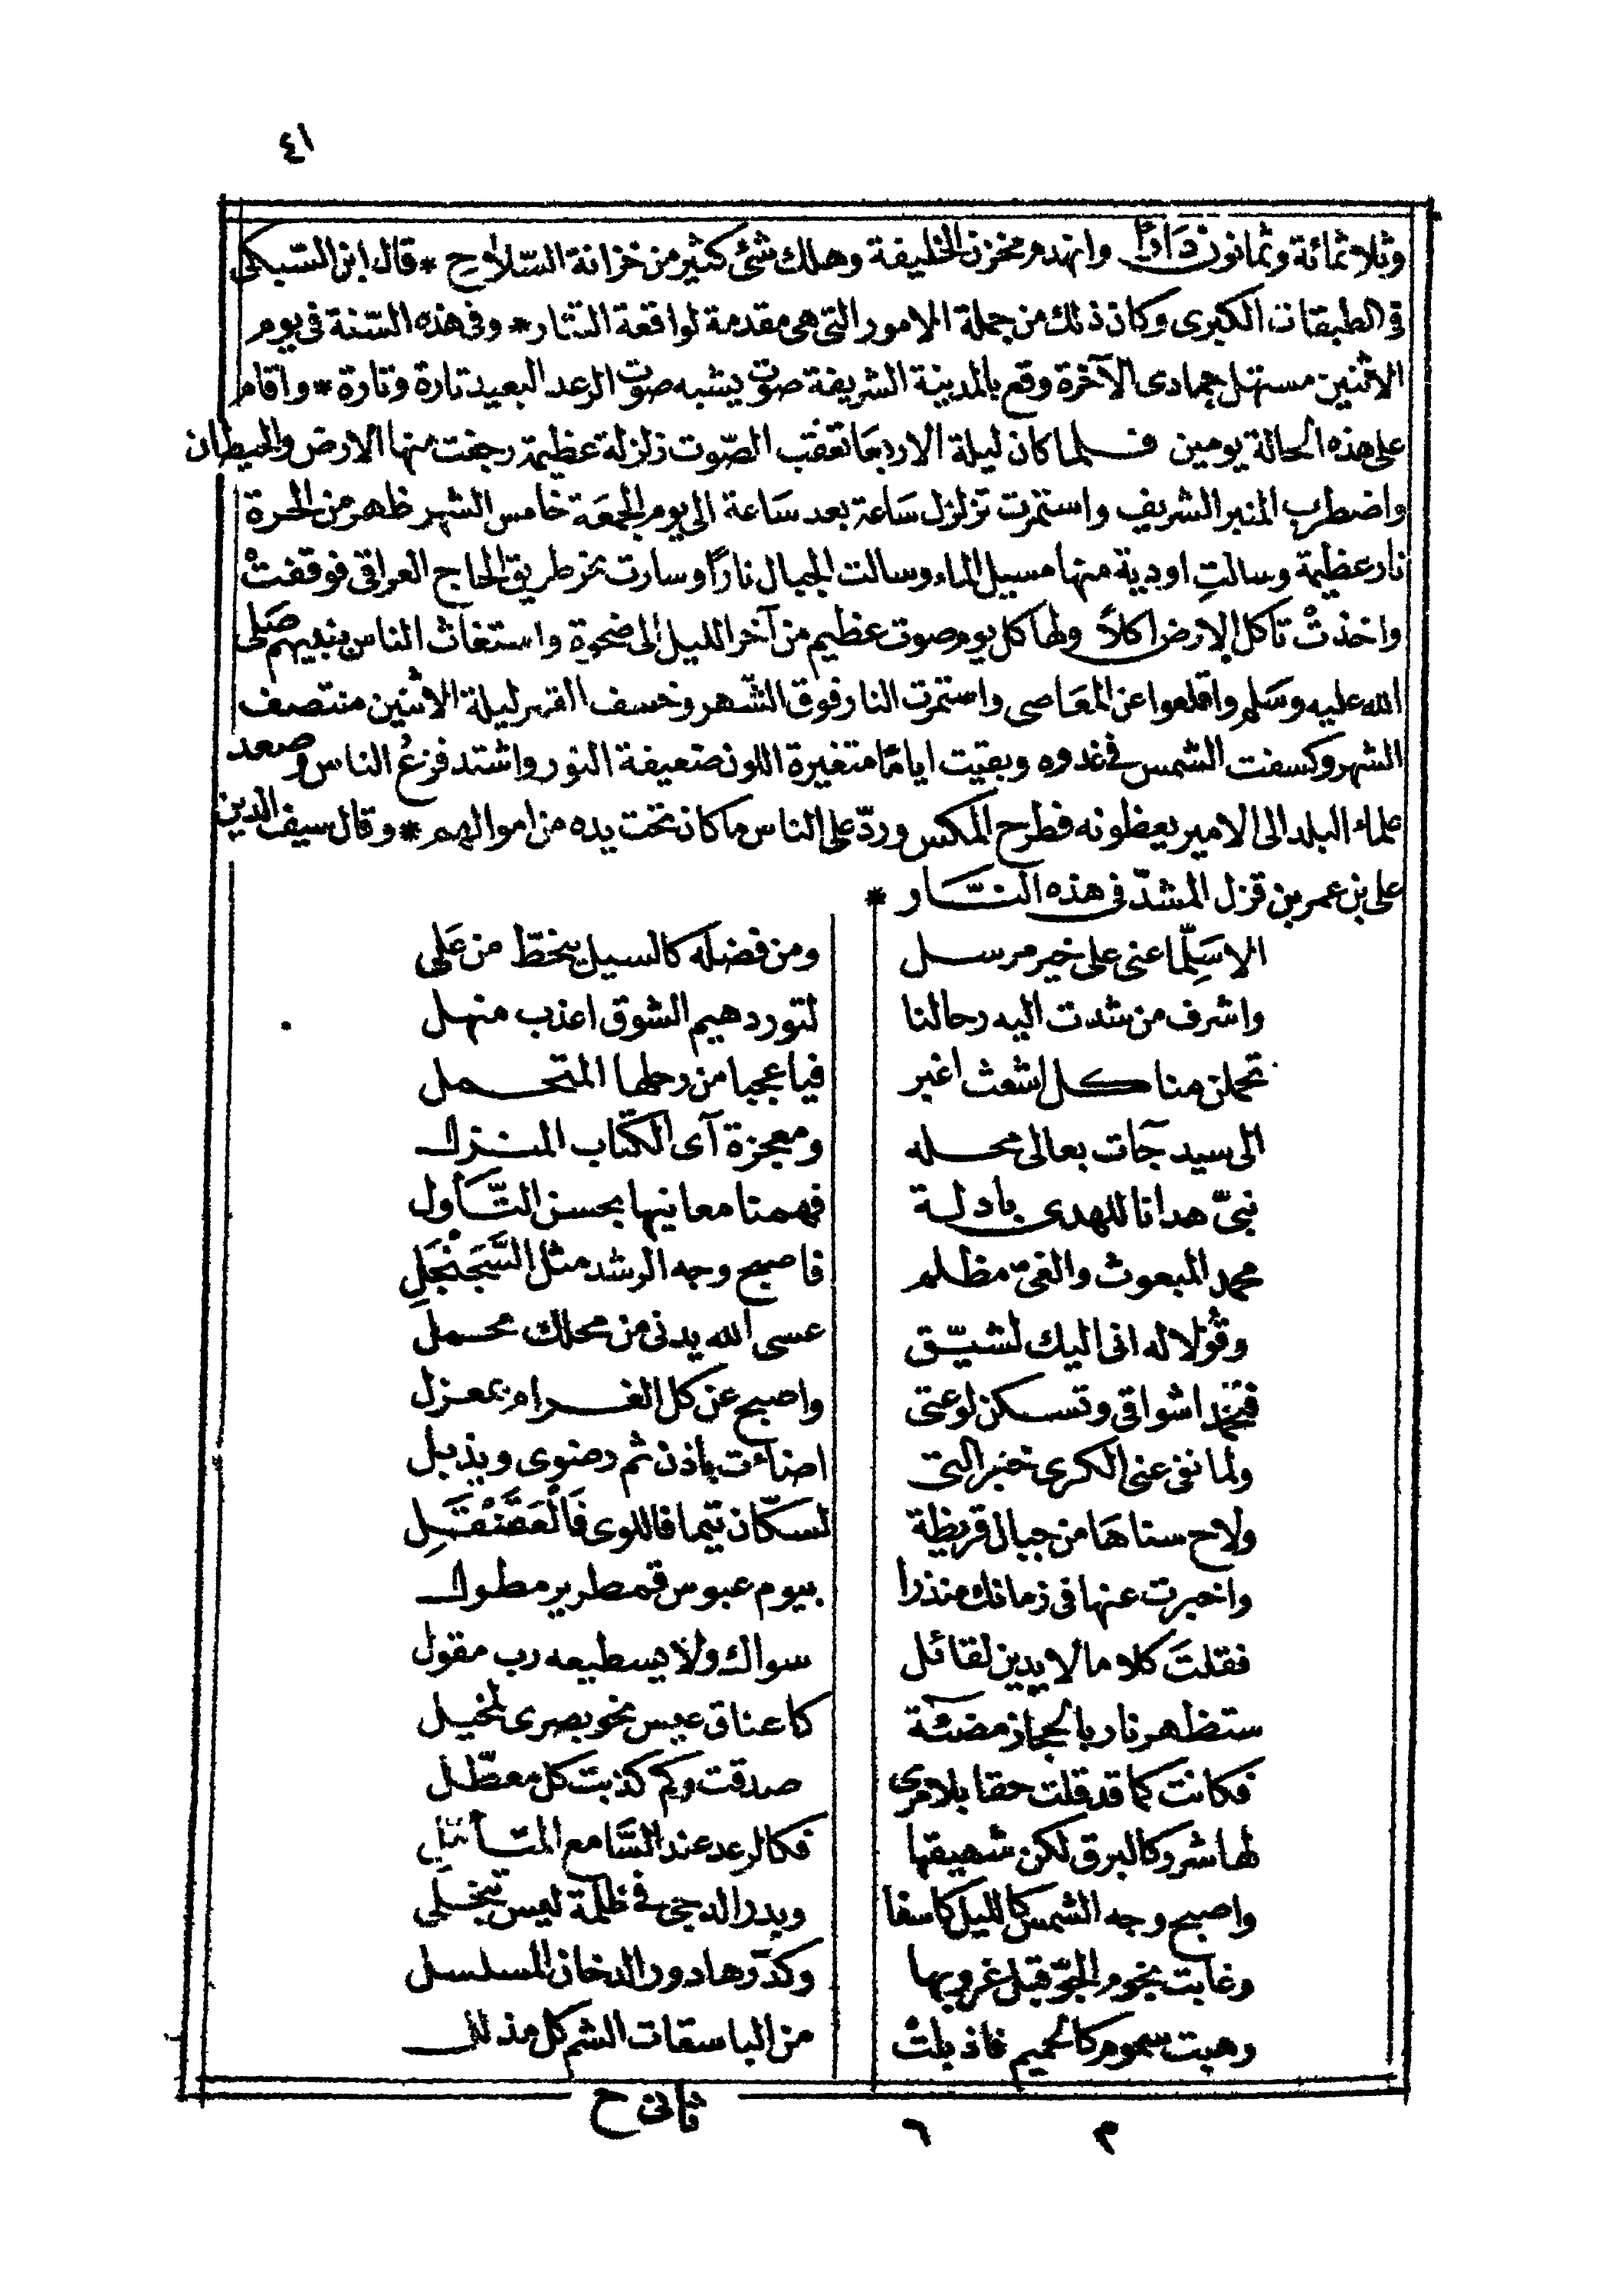 ٤١
وثلاثمائة وثمانون دارًا وانهدم مخزن الخليفة وهلك شئ كثير من خزانة السّلاح * قال ابن السّبكى
فى الطبقات الكبرى وكان ذلك من جملة الامور التى هى مقدمة لواقعة التتار * وفى هذه السّنة فى يوم
الاثنين مستهل جمادى الآخرة وقع بالمدينة الشريفة صوت يشبه صوت الرعد البعيد تارة وتارة * واقام
على هذه الحالة يومين فلما كان ليلة الاربعا تعقب الصّوت زلزلة عظيمة رجفت منها الارض والحيطان
واضطرب المنبر الشريف واستمرت تزلزل ساعة بعد ساعة الى يوم الجمعة خامس الشهر ظهر من الحرة
نار عظيمة وسالتِ اودية منها مسيل الماء وسالت الجبال نارًا وسارت نحو طريق الحاج العراقى فوقفتْ
واخذتْ تاكل الارض اكلاً ولها كل يوم صوت عظيم من آخر الليل الى ضحوة واستغاث الناس بنبيهم صلى
الله عليه وسلم واقلعوا عن المعاصى واستمرت النار فوق الشّهر وخسف القمر ليلة الاثنين منتصف
الشهر وكسفت الشمس فى غدوه وبقيت ايامًا متغيرة اللون ضعيفة النور واشتد فزعُ الناس وصعد
علماء البلد الى الامير يعظونه فطرح المكس وردّ على الناس ما كان تحت يده من اموالهم * وقال سيف الدين
على بن عمر بن قزل المشدّ فى هذه النّار *
الا سَلِّما عنى على خير مرسل ومن فضله كالسيل ينحطّ من عَلى
واشرف من شدت اليه رحالنا لتورد هيم الشوق اعذب منهل
تحملن منا كل اشعث اغبر فيا عجبا من رحلها المتحمل
الى سيد جآت بعالى محله ومعجزة آى الكتاب المنزل
نبىّ هدانا للهدى بادلة فهمنا معانيها بحسن التّأول
محمد المبعوث والغىّ مظلم فاصبح وجه الرشد مثل السَّجَنْجَلِ
وقُولا له انى اليك لشيّق عسى الله يدنى من محلك محمل
فتخمد اشواقى وتسكن لوعتى واصبح عن كل الغرام بمعزل
ولما نفى عنى الكرى خبر التى اضاءت باذن ثم رضوى ويذبل
ولاح سناها من جبال قريظة لسكّان تيما فاللوى فَالْعَقَنْقَلِ
واخبرت عنها فى زمانك منذرا بيوم عبوس قمطرير مطول
فقلتَ كلاما لا يدين لقائل سواك ولا يسطيعه رب مقول
ستظهر نار بالحجاز مضئة كاعناق عيس نحو بصرى لمخيل
فكانت كما قد قلت حقا بلا مرى صدقت وكم كذبت كل معطّل
لها شرر كالبرق لكن شهيقها فكالرعد عند السَّامع المتأمل
واصبح وجه الشمس كالليل كاسفا وبدر الدجى فى ظلمة ليس تنجلى
وغابت نجوم الجوّ قبل غروبها وكدّرها دور الدخان المسلسل
وهبت سموم كالحميم فاذبلتْ من الباسقات الشم كل مذلل
م ٦ ثانى ح